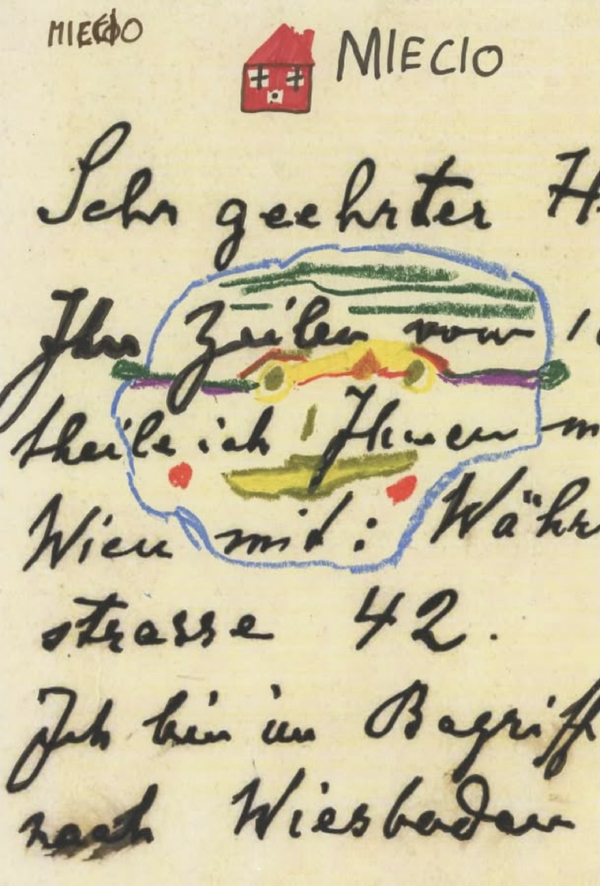 MIECIO
MIECIO
Sehr geehrter H
Ihre Zeilen vom 1
theile ich Ihnen m
Wien mit: Währ
strasse 42.
Ich bin im Begriff
nach Wiesbaden